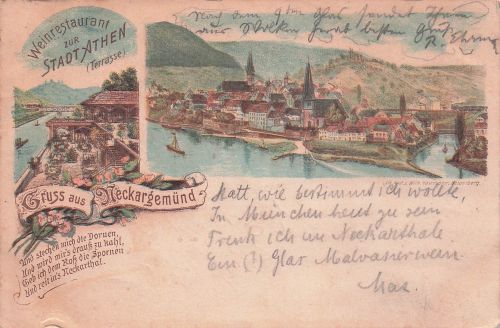 Weinrestaurant
ZUR
STADT ATHEN
(Terrasse)
Nach dem 9ten Glas sendet Ihnen
aus besten Gruß
Gruss aus Neckargemünd.
Und stechen mich die Dornen,
Und wird mir's drauß zu kahl,
Geb ich dem Roß die Spornen
Und reit in's Neckarthal.
Statt, wie bestimmt ich wollte,
In München heut zu sein
Trink ich im Neckarthale
Ein (!) Glas Malvasierwein
Max.